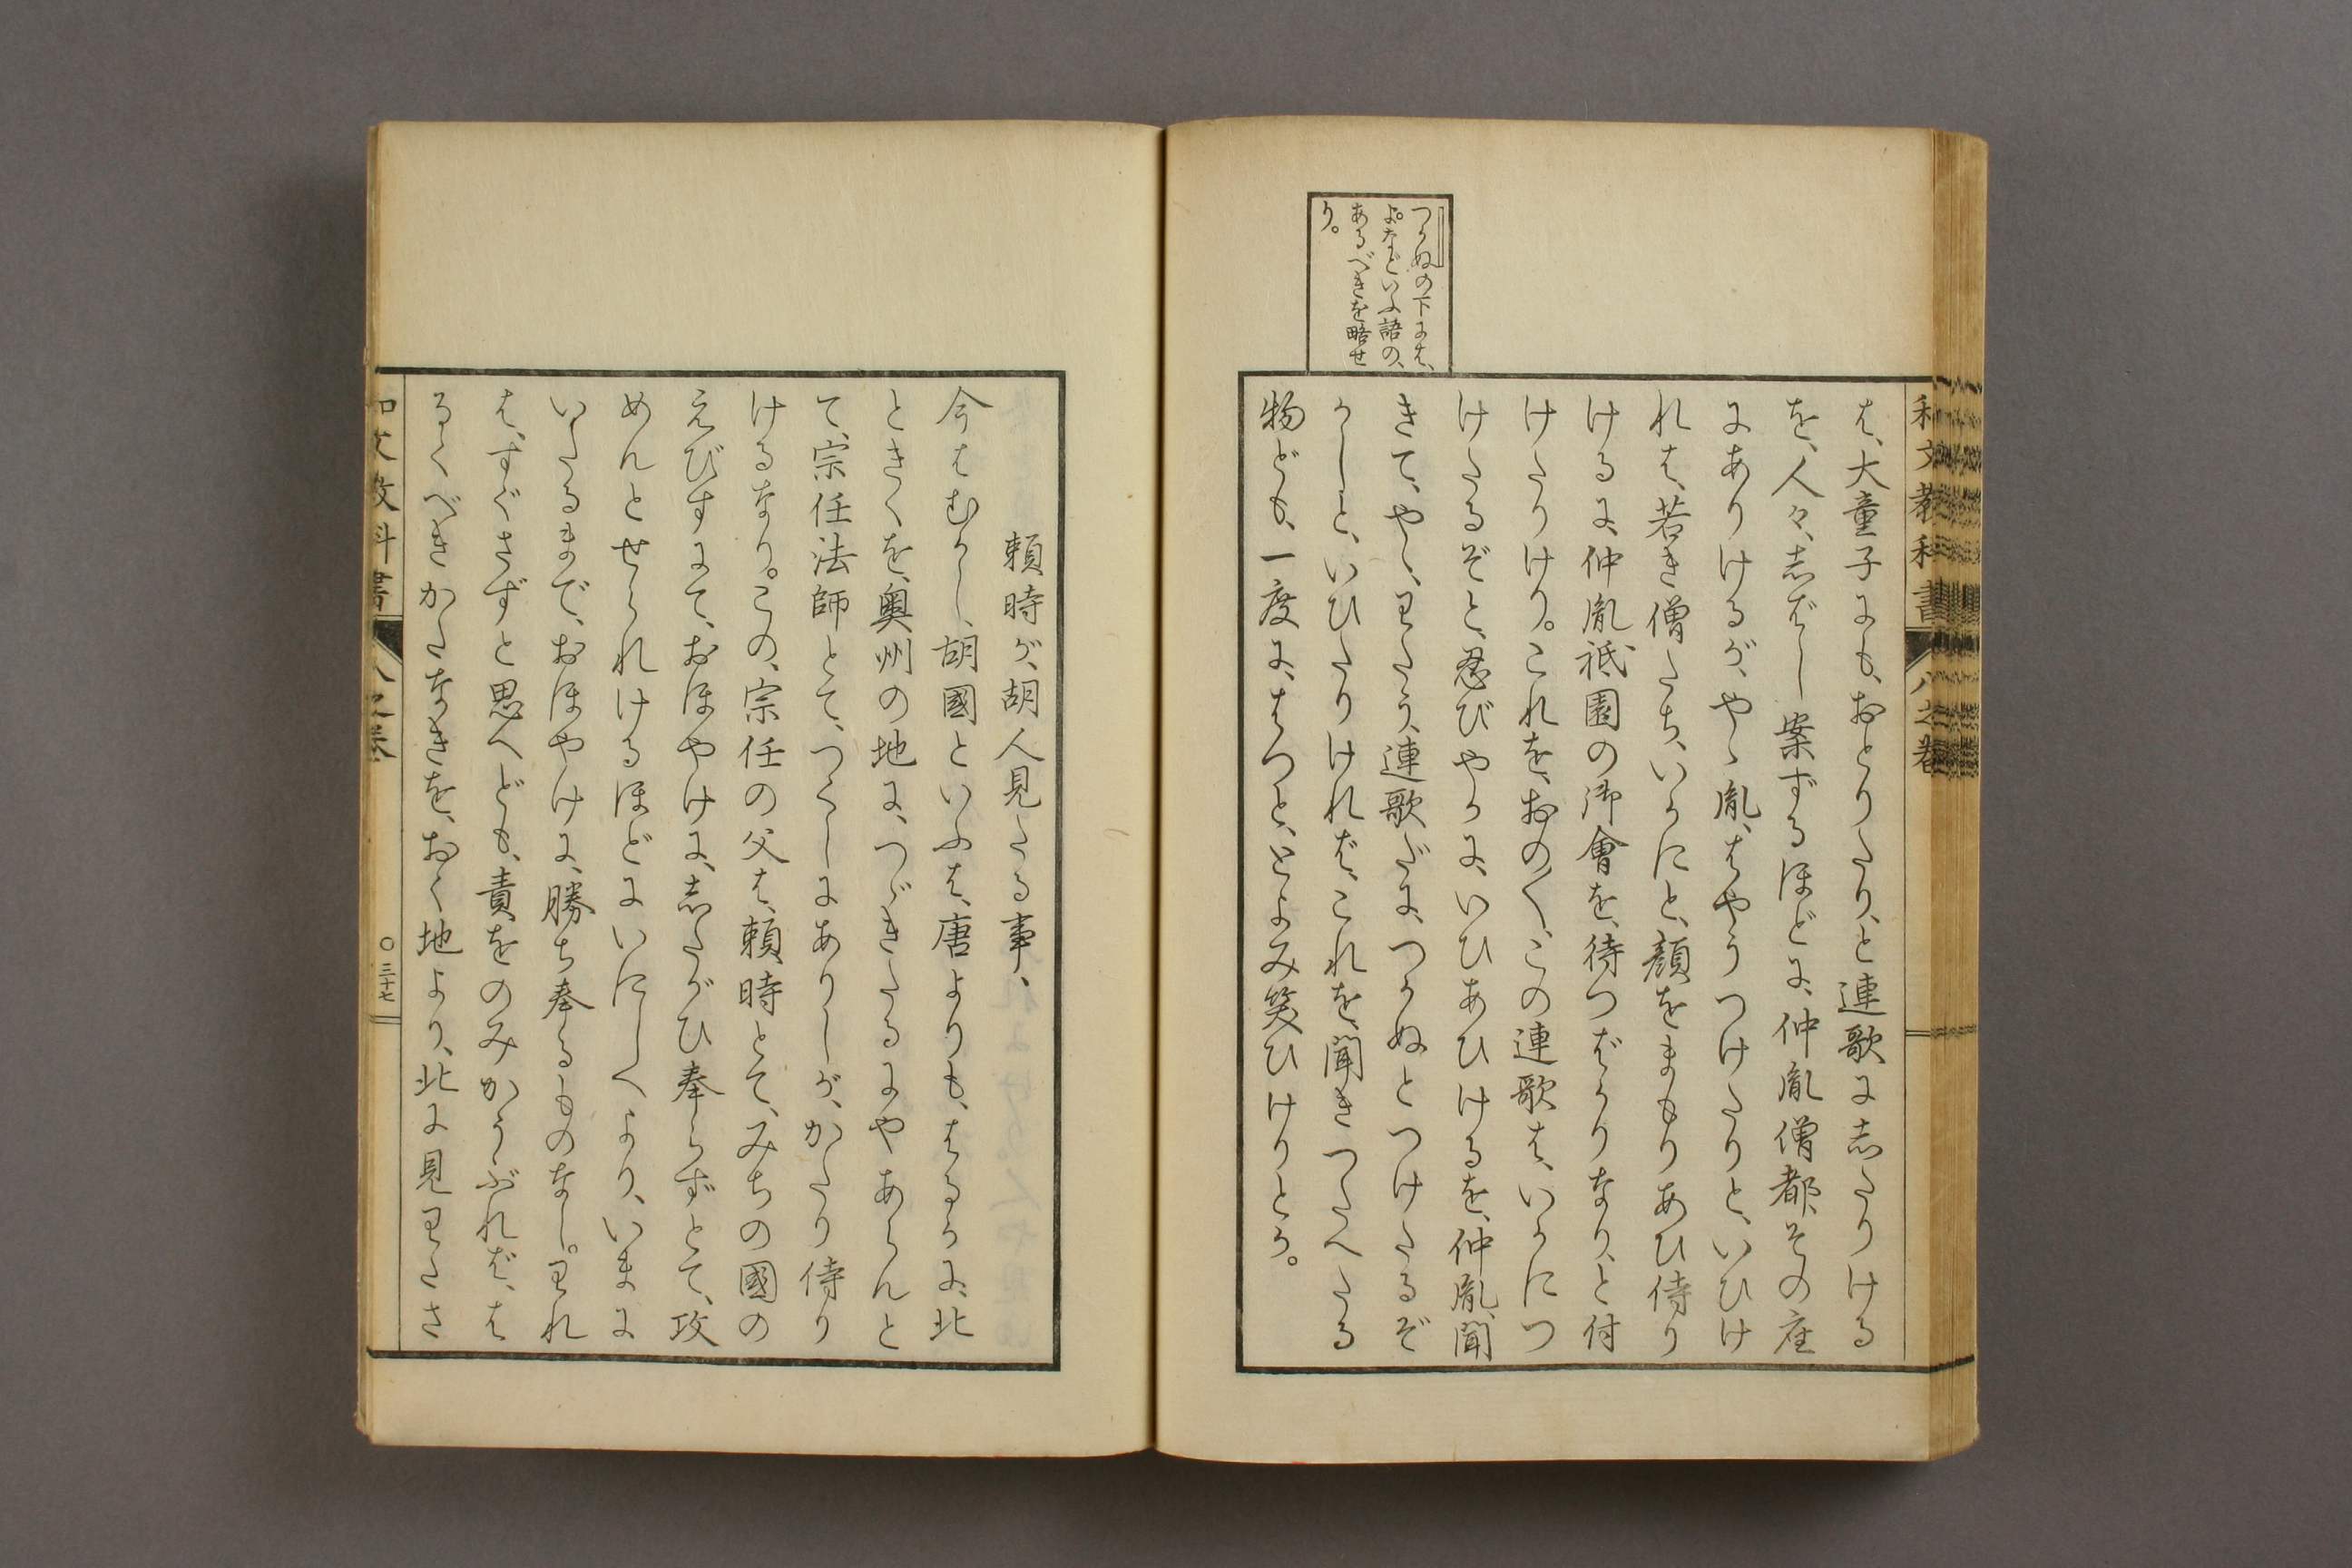 和文教科書 八之卷
つかぬの下には、
よなどいふ語の、
あるべきを略せ
り。
は、大童子にも、おとりたり、と連歌にしたりける
を、人々、しばし案ずるほどに、仲胤僧都、その座
にありけるが、やゝ胤、はやうつけたりと、いひけ
れは、若き僧たち、いかにと、顔をまもりあひ侍り
けるに、仲胤、祇園の御會を、待つばかりなり、と付
けたりけり。これを、おの〳〵、この連歌は、いかにつ
けたるぞと、忍びやかに、いひあひけるを、仲胤、聞
きて、やゝ、わたう、連歌だに、つかぬとつけたるぞ
かしと、いひたりければ、これを、聞きつたへたる
物ども、一度に、はつと、とよみ笑ひけりとか。
頼時が、胡人見たる事、
今はむかし、胡國といふは、唐よりも、はるかに、北
ときくを、奧州の地に、つゞきたるにやあらんと
て、宗任法師とて、つくしにありしが、かたり侍り
けるなり。この、宗任の父は、頼時とて、みちの國の
えびすにて、おほやけに、したがひ奉らずとて、攻
めんとせられけるほどに、いにしへより、いまに
いたるまで、おほやけに、勝ち奉るものなし。われ
は、すぐさずと思へども、責をのみかうぶれば、は
るくべきかたなきを、おく地より、北に見わたさ
和文教科書 八之卷 〇三十七